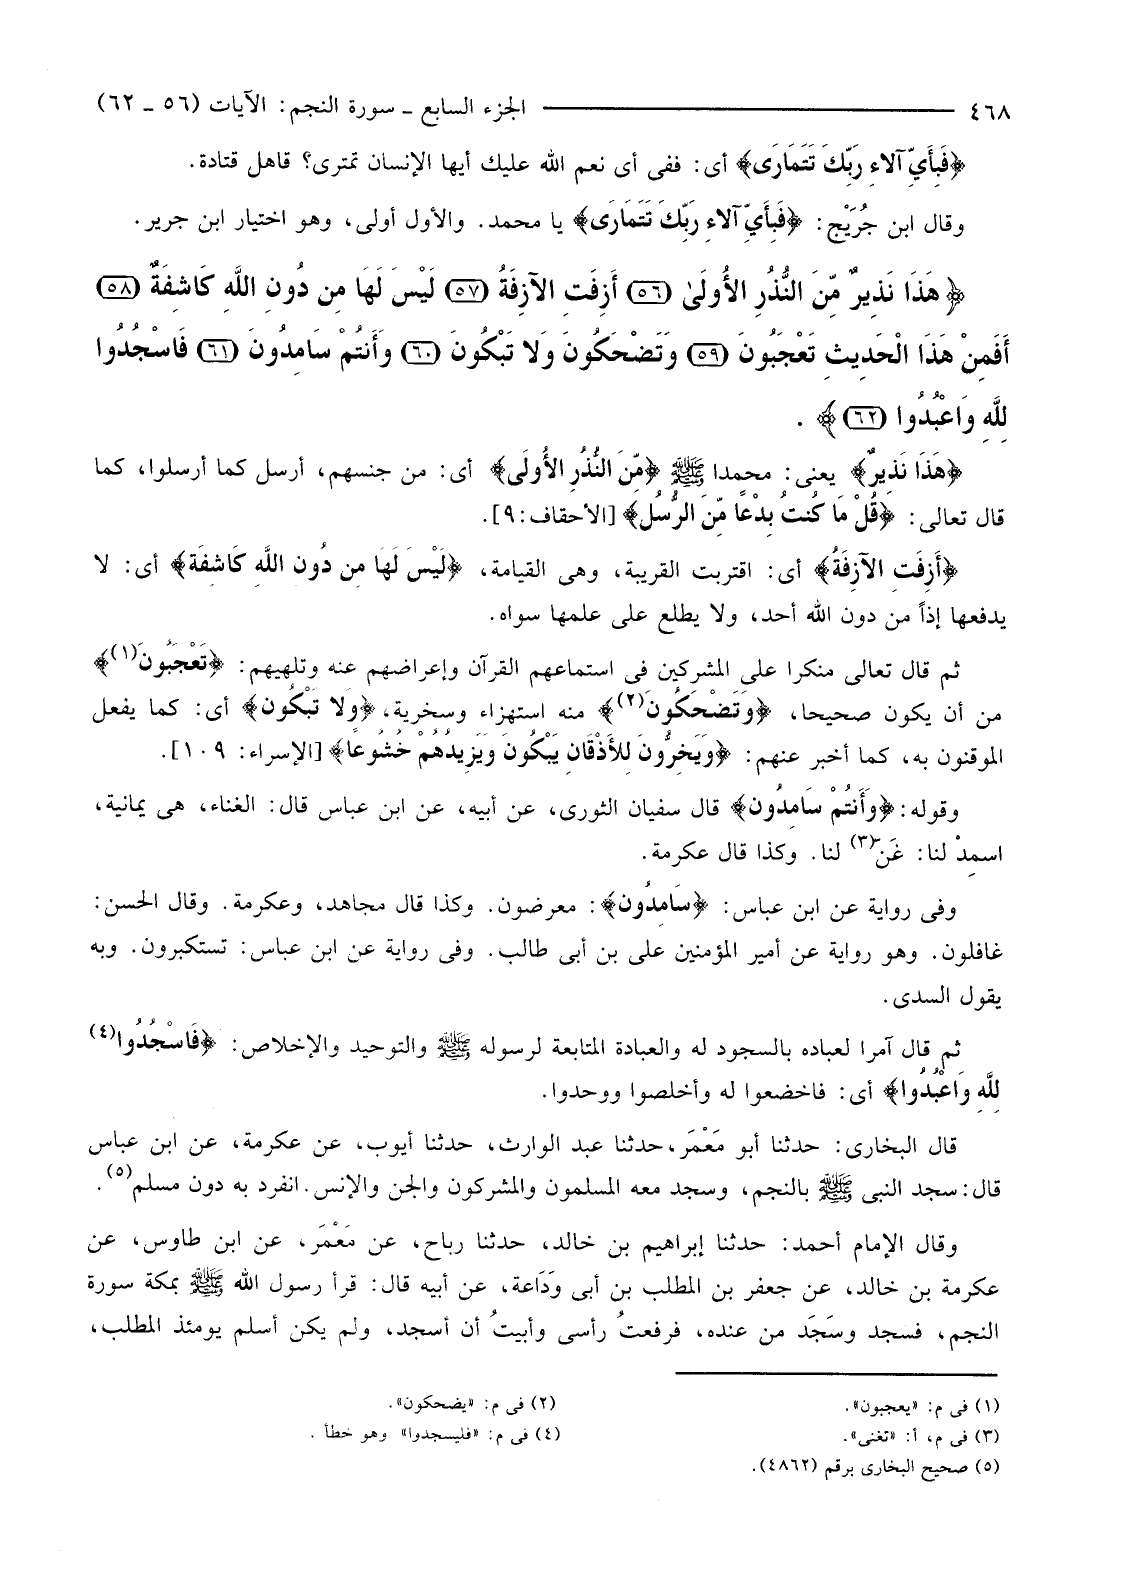 ٤٦٨ ــــــــــــــــــــــــــــــــــــــــ الجزء السابع ـ سورة النجم: الآيات (٥٦ ـ ٦٢)
﴿فَبِأَيِّ آلاءِ رَبِّكَ تَتَمَارَى﴾ أى: ففى أى نعم الله عليك أيها الإنسان تمترى؟ قاهل قتادة.
وقال ابن جُرَيْج: ﴿فَبِأَيِّ آلاءِ رَبِّكَ تَتَمَارَى﴾ يا محمد. والأول أولى، وهو اختيار ابن جرير.
﴿هَذَا نَذِيرٌ مِّنَ النُّذُرِ الأُولَىٰ (٥٦) أَزِفَتِ الآزِفَةُ (٥٧) لَيْسَ لَهَا مِن دُونِ اللَّهِ كَاشِفَةٌ (٥٨)
أَفَمِنْ هَذَا الْحَدِيثِ تَعْجَبُونَ (٥٩) وَتَضْحَكُونَ وَلا تَبْكُونَ (٦٠) وَأَنتُمْ سَامِدُونَ (٦١) فَاسْجُدُوا
لِلَّهِ وَاعْبُدُوا (٦٢)﴾ .
﴿هَذَا نَذِيرٌ﴾ يعنى: محمدا ﷺ ﴿مِّنَ النُّذُرِ الأُولَى﴾ أى: من جنسهم، أرسل كما أرسلوا، كما
قال تعالى: ﴿قُلْ مَا كُنتُ بِدْعًا مِّنَ الرُّسُلِ﴾ [الأحقاف:٩].
﴿أَزِفَتِ الآزِفَةُ﴾ أى: اقتربت القريبة، وهى القيامة، ﴿لَيْسَ لَهَا مِن دُونِ اللَّهِ كَاشِفَة﴾ أى: لا
يدفعها إذاً من دون الله أحد، ولا يطلع على علمها سواه.
ثم قال تعالى منكرا على المشركين فى استماعهم القرآن وإعراضهم عنه وتلهيهم: ﴿تَعْجَبُونَ(١)﴾
من أن يكون صحيحا، ﴿وَتَضْحَكُونَ(٢)﴾ منه استهزاء وسخرية، ﴿وَلا تَبْكُون﴾ أى: كما يفعل
الموقنون به، كما أخبر عنهم: ﴿وَيَخِرُّونَ لِلأَذْقَانِ يَبْكُونَ وَيَزِيدُهُمْ خُشُوعًا﴾ [الإسراء: ١٠٩].
وقوله: ﴿وَأَنتُمْ سَامِدُون﴾ قال سفيان الثورى، عن أبيه، عن ابن عباس قال: الغناء، هى يمانية،
اسمِدْ لنا: غَن(٣) لنا. وكذا قال عكرمة.
وفى رواية عن ابن عباس: ﴿سَامِدُون﴾: معرضون. وكذا قال مجاهد، وعكرمة. وقال الحسن:
غافلون. وهو رواية عن أمير المؤمنين على بن أبى طالب. وفى رواية عن ابن عباس: تستكبرون. وبه
يقول السدى.
ثم قال آمرا لعباده بالسجود له والعبادة المتابعة لرسوله ﷺ والتوحيد والإخلاص: ﴿فَاسْجُدُوا(٤)
لِلَّهِ وَاعْبُدُوا﴾ أى: فاخضعوا له وأخلصوا ووحدوا.
قال البخارى: حدثنا أبو مَعْمَر، حدثنا عبد الوارث، حدثنا أيوب، عن عكرمة، عن ابن عباس
قال: سجد النبى ﷺ بالنجم، وسجد معه المسلمون والمشركون والجن والإنس. انفرد به دون مسلم(٥).
وقال الإمام أحمد: حدثنا إبراهيم بن خالد، حدثنا رباح، عن مَعْمَر، عن ابن طاوس، عن
عكرمة بن خالد، عن جعفر بن المطلب بن أبى وَدَاعة، عن أبيه قال: قرأ رسول الله ﷺ بمكة سورة
النجم، فسجد وسَجَد من عنده، فرفعتُ رأسى وأبيتُ أن أسجد، ولم يكن أسلم يومئذ المطلب،
(١) فى م: «يعجبون».
(٢) فى م: «يضحكون».
(٣) فى م، أ: «تغنى».
(٤) فى م: «فليسجدوا» وهو خطأ .
(٥) صحيح البخارى برقم (٤٨٦٢).